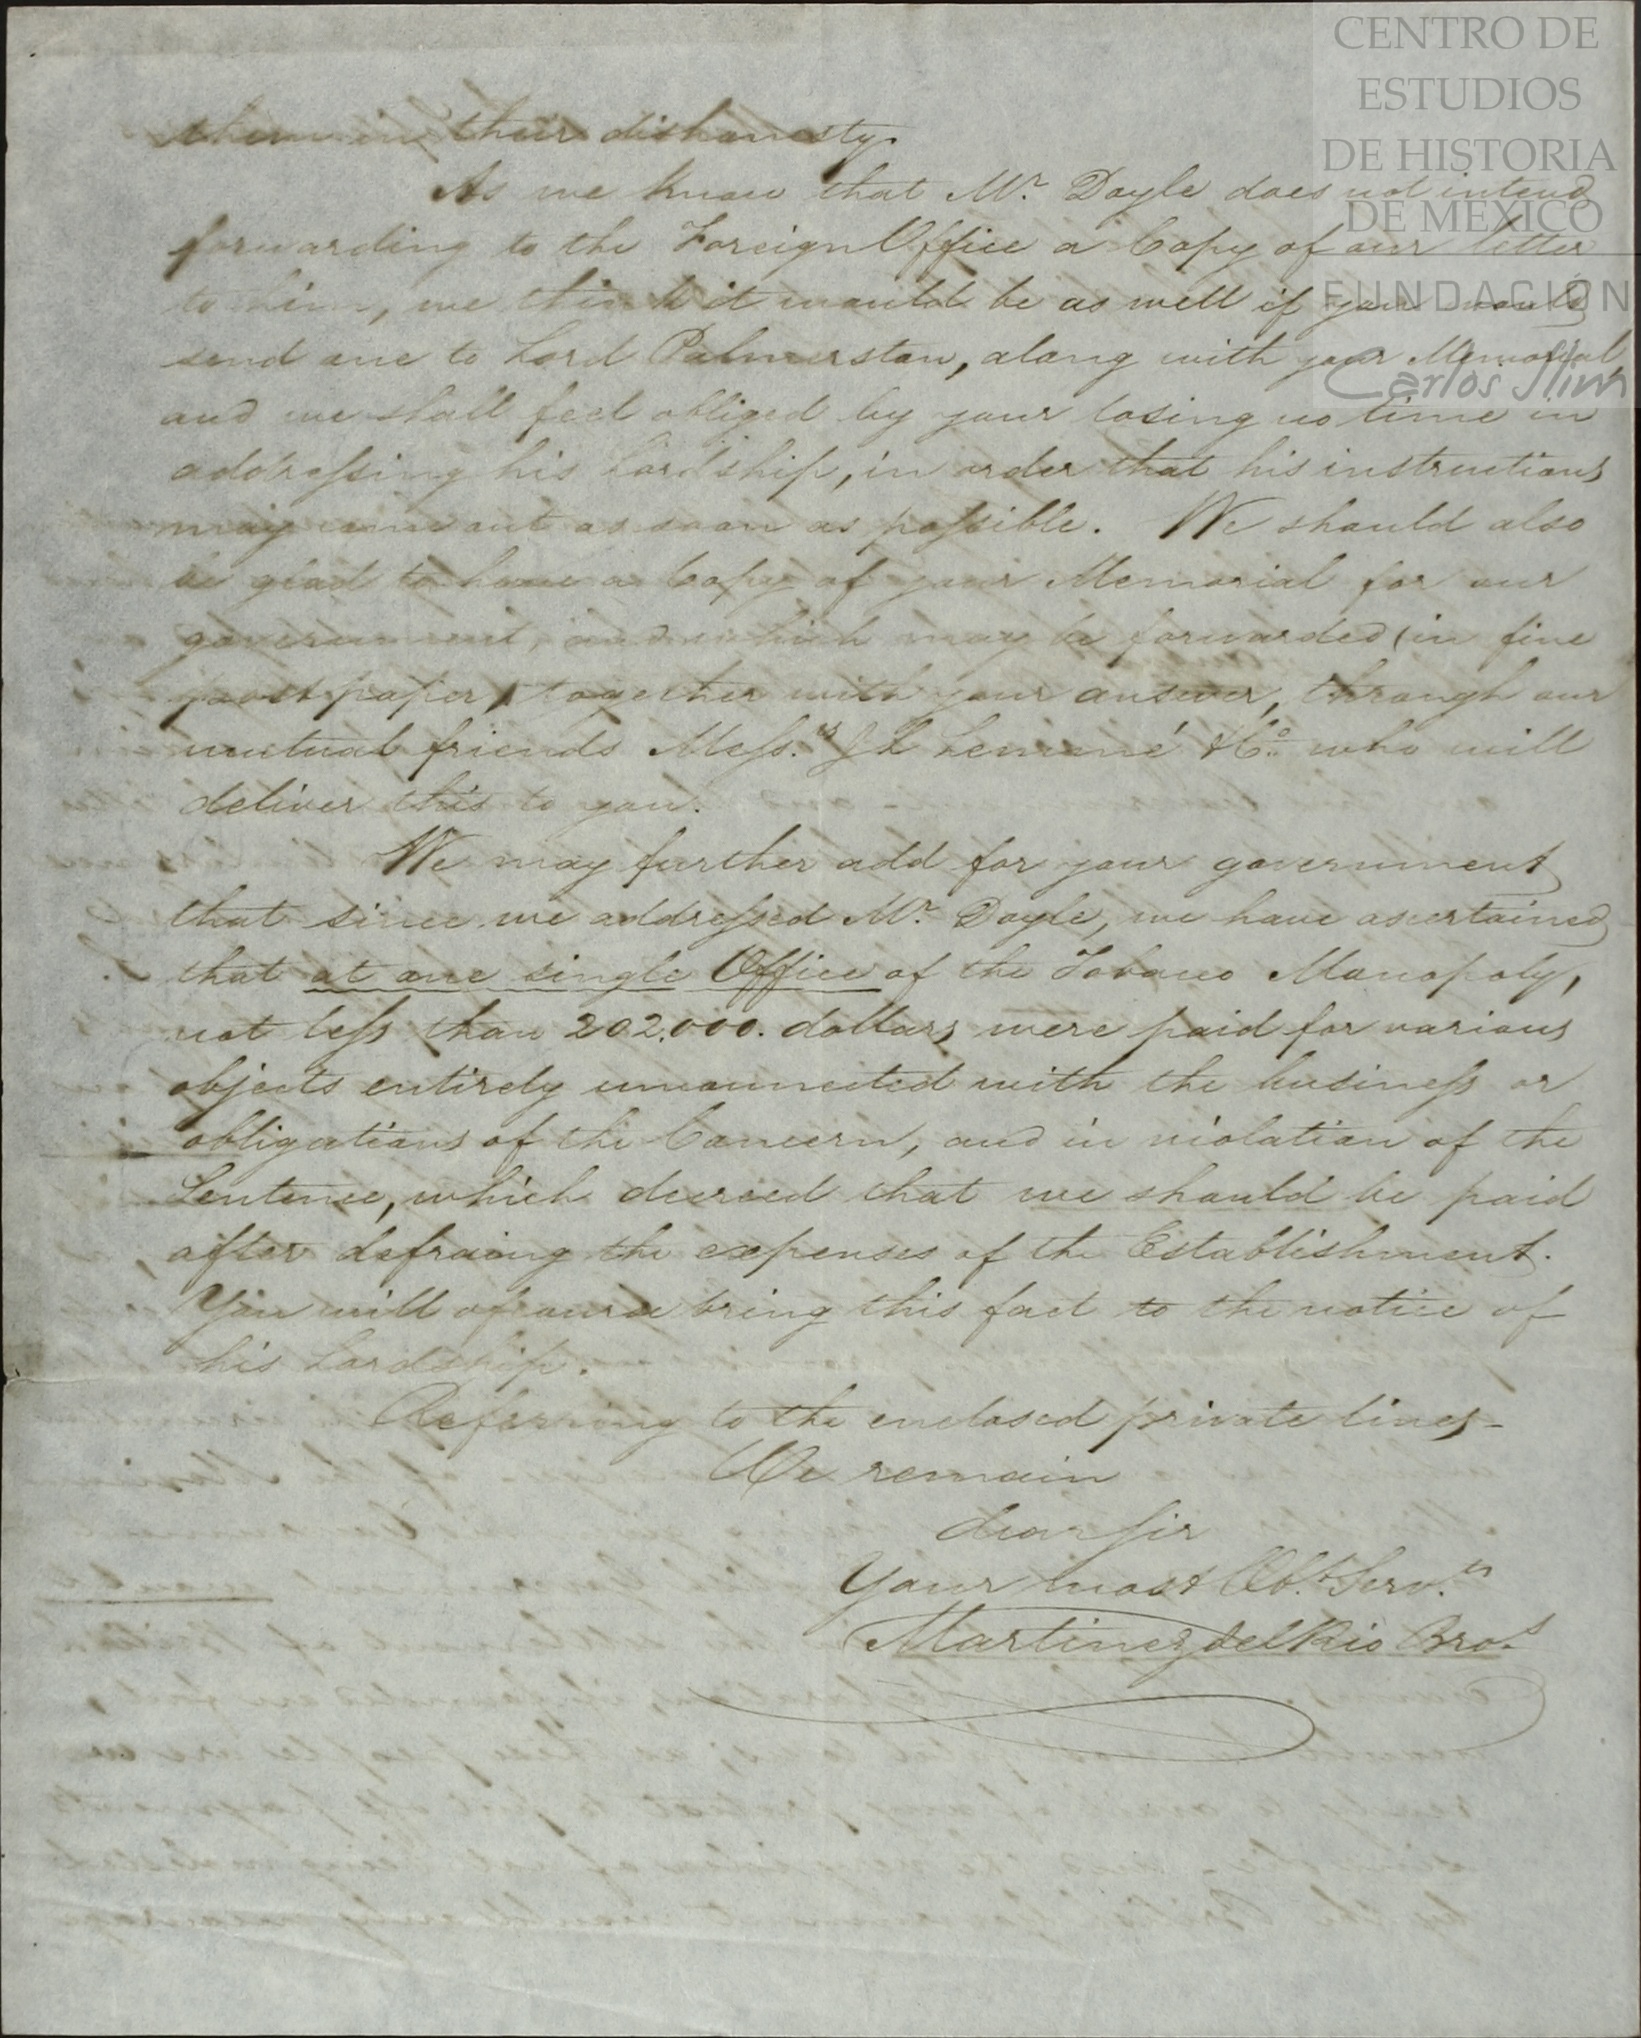 CENTRO DE
ESTUDIOS
DE HISTORIA
DE MEXICO
FUNDACIÓN
Carlos Slim
them in their dishonesty.
As we know that Mr. Doyle does not intend
forwarding to the Foreign Office a Copy of our letter
to him, we think it would be as well if you would
send one to Lord Palmerston, along with your Memorial,
and we shall feel obliged by your losing no time in
addressing his Lordship, in order that his instructions
may come out as soon as possible. We should also
be glad to have a Copy of your Memorial for our
government, and which may be forwarded (in fine
post paper) together with your answer, through our
mutual friends Messrs. J L Lemmé & Co. who will
deliver this to you.
We may further add for your government
that since we addressed Mr. Doyle, we have ascertained
that at one single Office of the Tobacco Monopoly,
not less than 202.000. dollars were paid for various
objects entirely unconnected with the business or
obligations of the Concern, and in violation of the
Sentence, which decreed that we should be paid
after defraing the expenses of the Establishment.
You will of course bring this fact to the notice of
his Lordship.
Referring to the enclosed private lines -
We remain
dear Sir
Your most Obt. Servts.
Martinez del Rio Bros